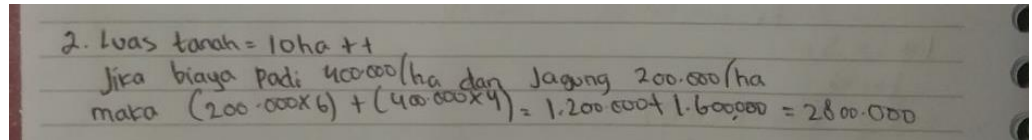 2. Luas tanah = 10ha ++
Jika biaya padi 400.000/ha dan Jagung 200.000/ha
maka (200.000x6) + (400.000x4) = 1.200.000 + 1.600.000 = 2800.000